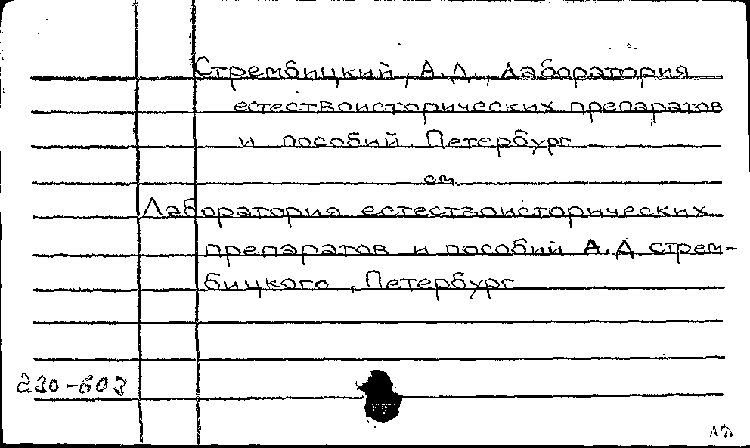 Стрембицкий, А.Д., Лаборатория
естествоисторических препаратов
и пособий. Петербург
см.
Лаборатория естествоисторических
препаратов и пособий А.Д. Стрем-
бицкого, Петербург
230-603